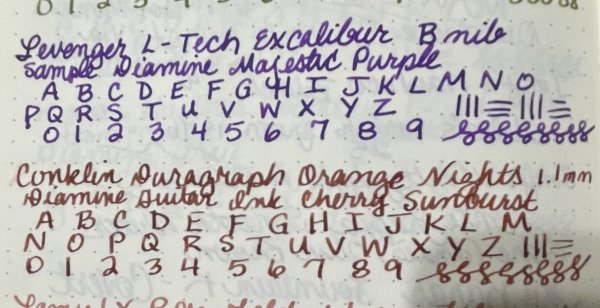 0 1 2 3 4 5 6 7 8 9
Levenger L-Tech Excalibur B nib
Sample Diamine Majestic Purple
A B C D E F G H I J K L M N O
P Q R S T U V W X Y Z
0 1 2 3 4 5 6 7 8 9
Conklin Duragraph Orange Nights 1.1mm
Diamine Guitar Ink Cherry Sunburst
A B C D E F G H I J K L M
N O P Q R S T U V W X Y Z
0 1 2 3 4 5 6 7 8 9